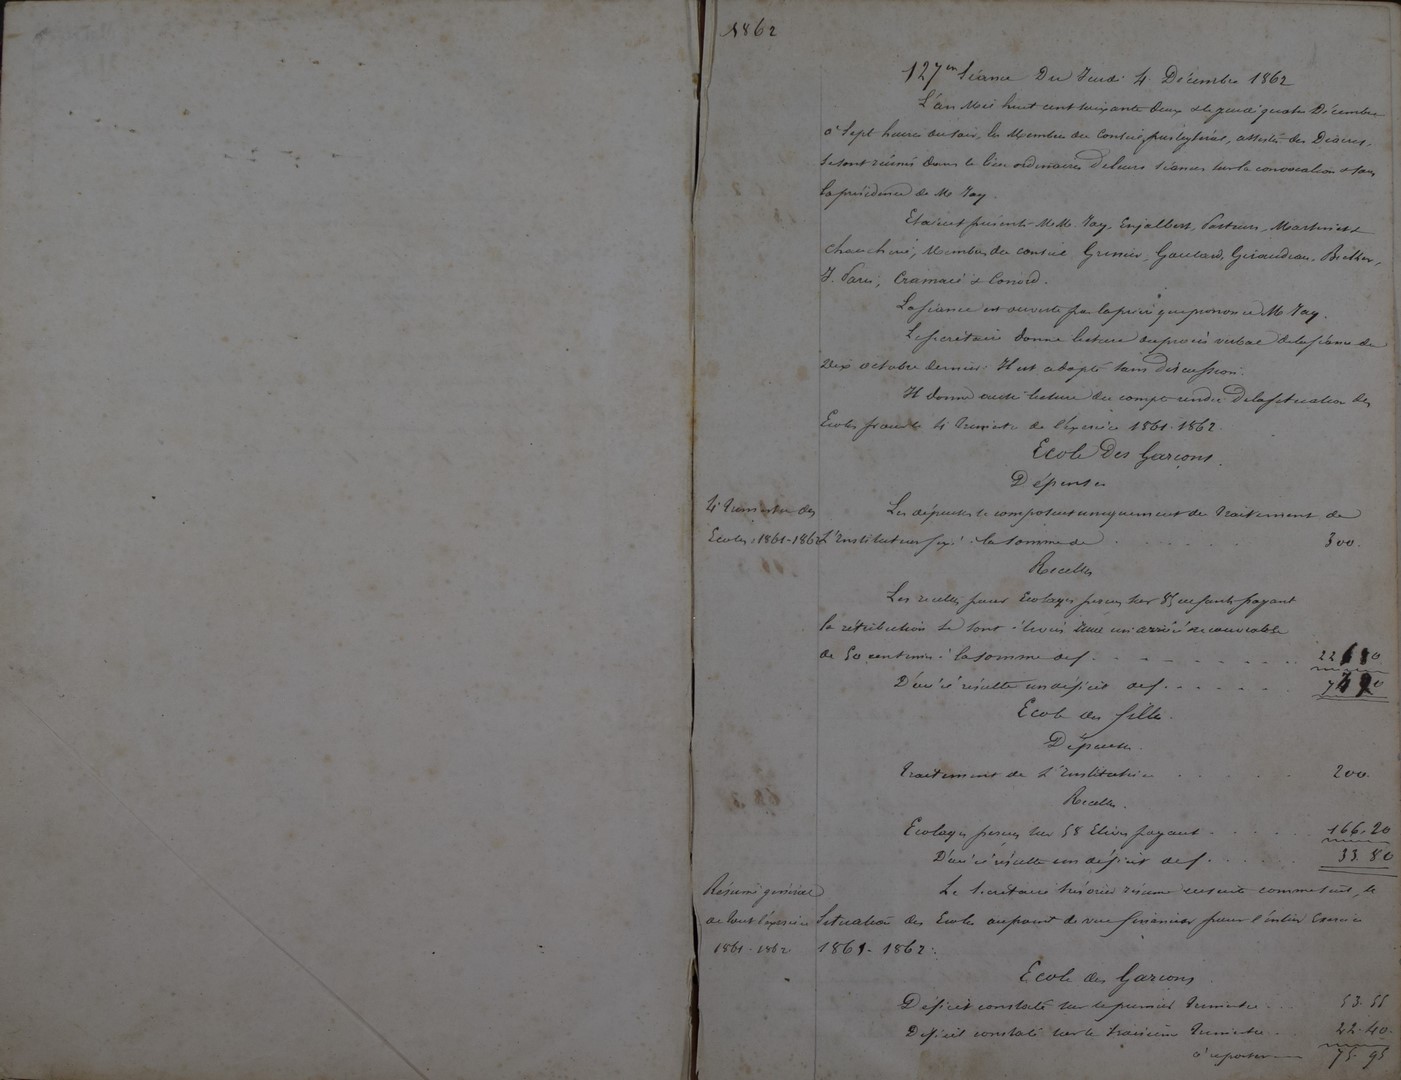 1862
127me Séance Du Jeudi 4 Décembre 1862
L'an Mil huit cent soixante deux & le jeudi quatre Décembre
à Sept heures du soir, les Membres du Conseil presbytéral, assistés des Diacres,
se sont réunis dans le lieu ordinaire de leurs séances sur la convocation & sous
la présidence de Mr Jay.
Etaient présents M.M. Jay, Enjalbert, Martinet &
membres du conseil Grenier, Goulard, Giraudeau,
J. Paris, Cramaré & Conord.
La séance est ouverte par la prière que prononce Mr Jay.
Le secrétaire donne lecture du procès verbal de la séance du
dix octobre dernier. Il est adopté sans discussion.
Il donne aussi lecture du compte rendu de la situation des
Ecoles pour le 4e trimestre de l'exercice 1861-1862.
Ecole des Garçons.
Dépenses
4e trimestre des
Ecoles 1861-1862
Les dépenses se composent uniquement du traitement de
L'Instituteur fixé à la somme de 300.
Recettes
Les recettes pour Ecolages perçus sur 85 enfants payant
la rétribution se sont élevées un arriéré recouvrable
de 50 centimes à la somme de f.
D'où il résulte un déficit de f.
Ecole des filles.
Dépenses.
Traitement de L'Institutrice 200.
Recettes.
Ecolages perçus sur 58 Elèves payant 166.20
D'où il résulte un déficit de f. 33.80
Résumé général
de tout l'exercice
1861-1862
Le Secrétaire trésorier résume ensuite comme suit, la
Situation des Ecoles au point de vue financier pour l'entier Exercice
1861-1862:
Ecole des Garçons
Déficit constaté sur le premier Trimestre 53.55
Déficit constaté sur le troisième Trimestre 22.40
à reporter 75.95